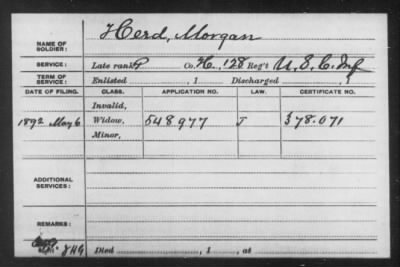 NAME OF SOLDIER: Herd, Morgan
SERVICE: Late rank P Co. H, 128 Reg't U.S.C. Inf
TERM OF SERVICE: Enlisted , 1 Discharged , 1
DATE OF FILING. CLASS. APPLICATION NO. LAW. CERTIFICATE NO.
Invalid,
1892 May 6 Widow, 548977 J 378.071
Minor,
ADDITIONAL SERVICES:
REMARKS:
Died , 1 , at